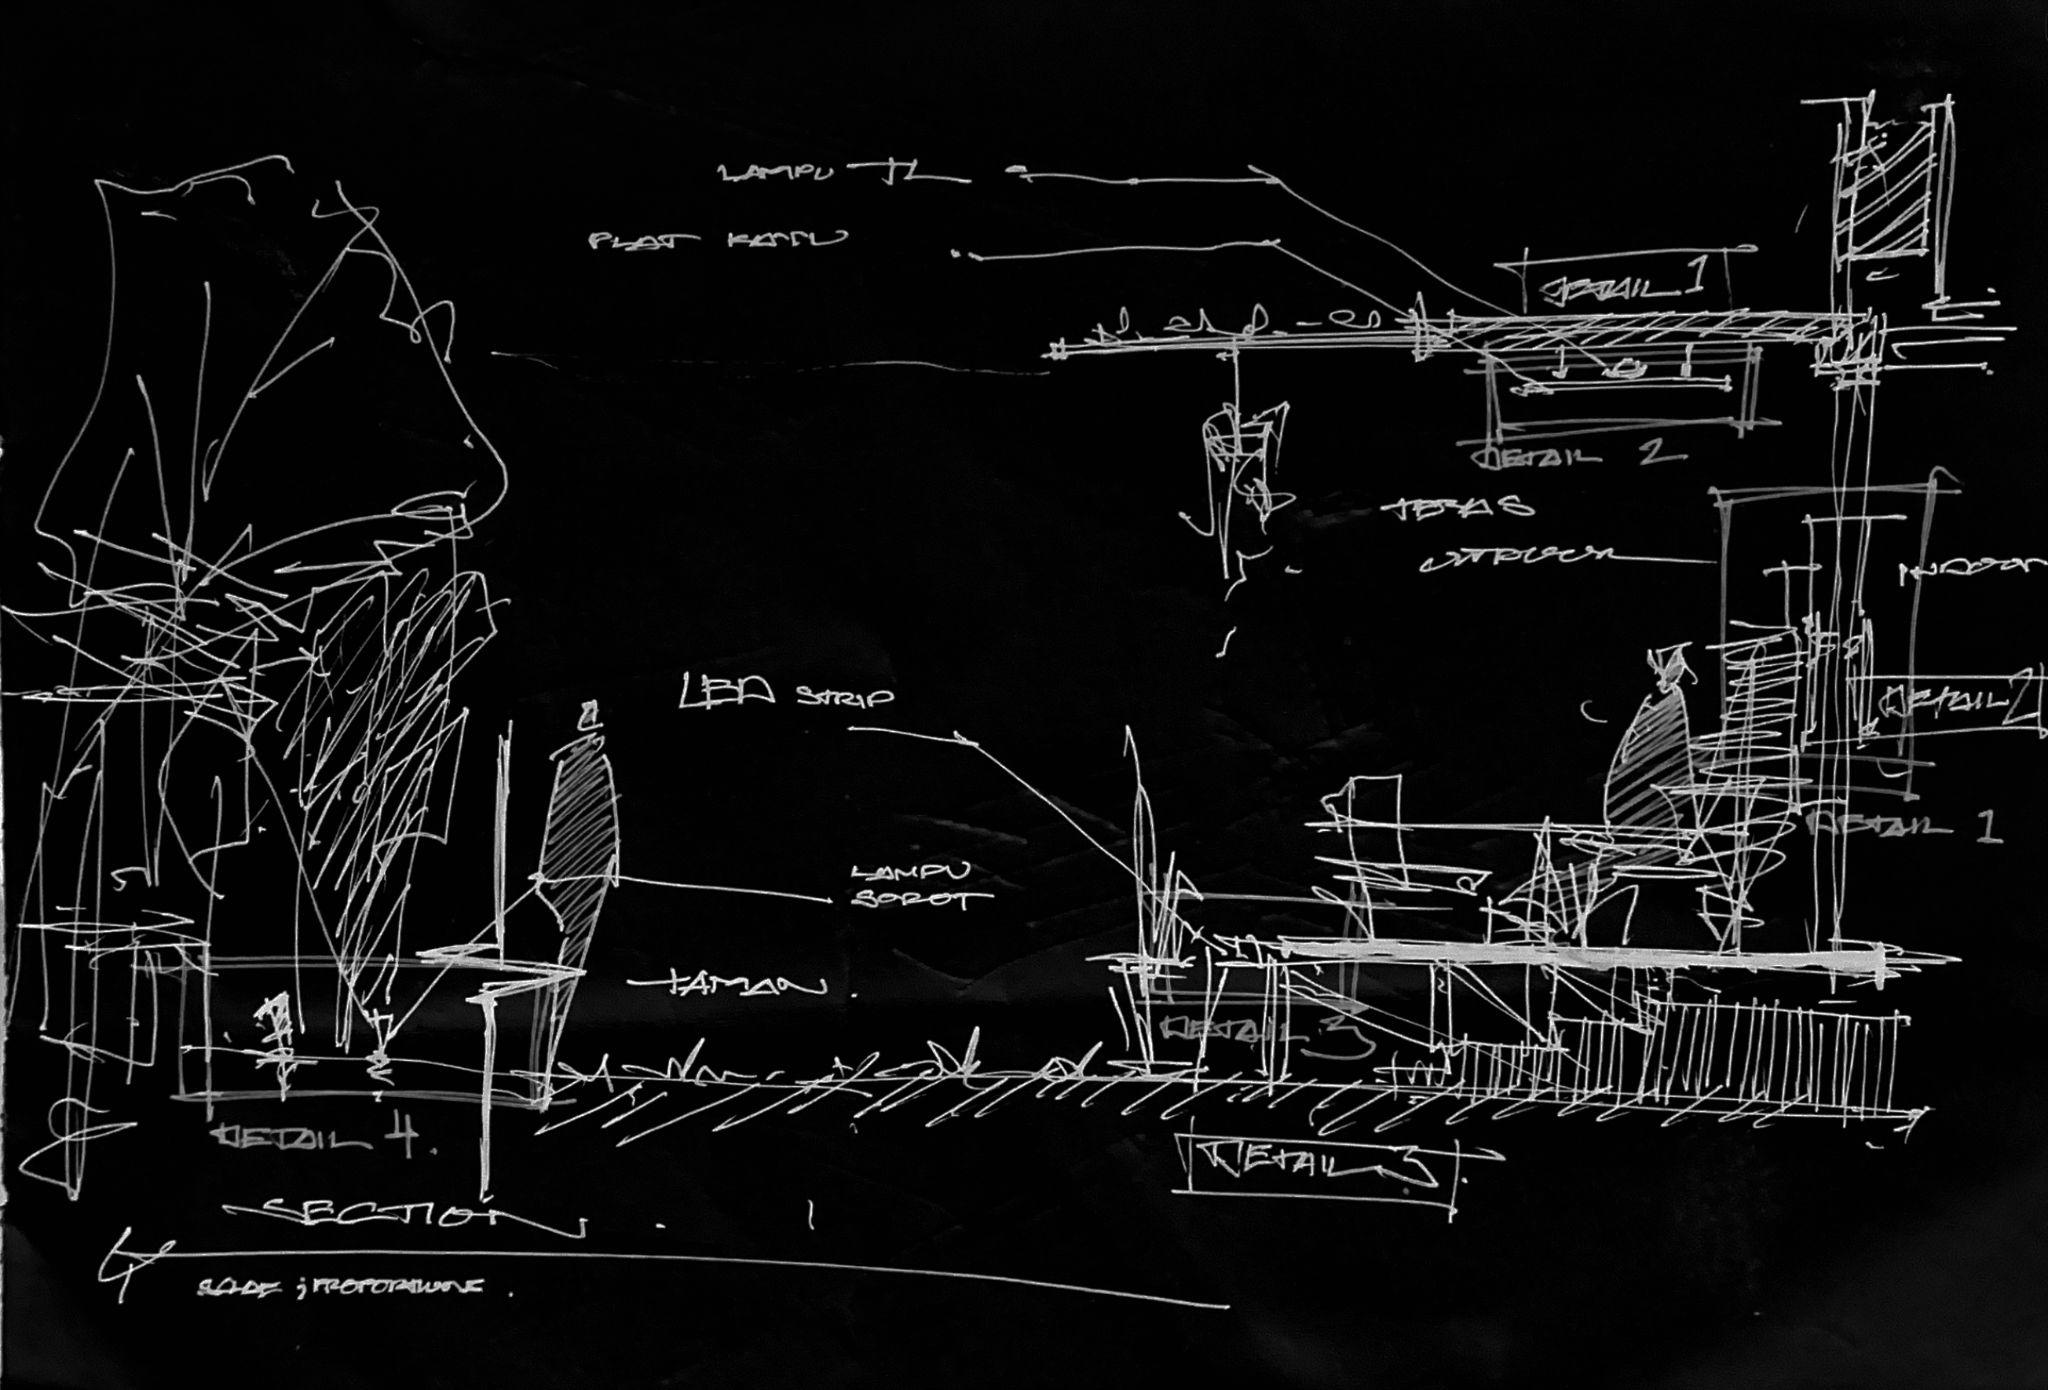 LAMPU TL
PLAT KAYU
DETAIL 1
DETAIL 2
TERAS
INDOOR
LED STRIP
DETAIL 2
DETAIL 1
LAMPU
SOROT
TAMAN.
DETAIL 3
DETAIL 4.
DETAIL 3.
SECTION